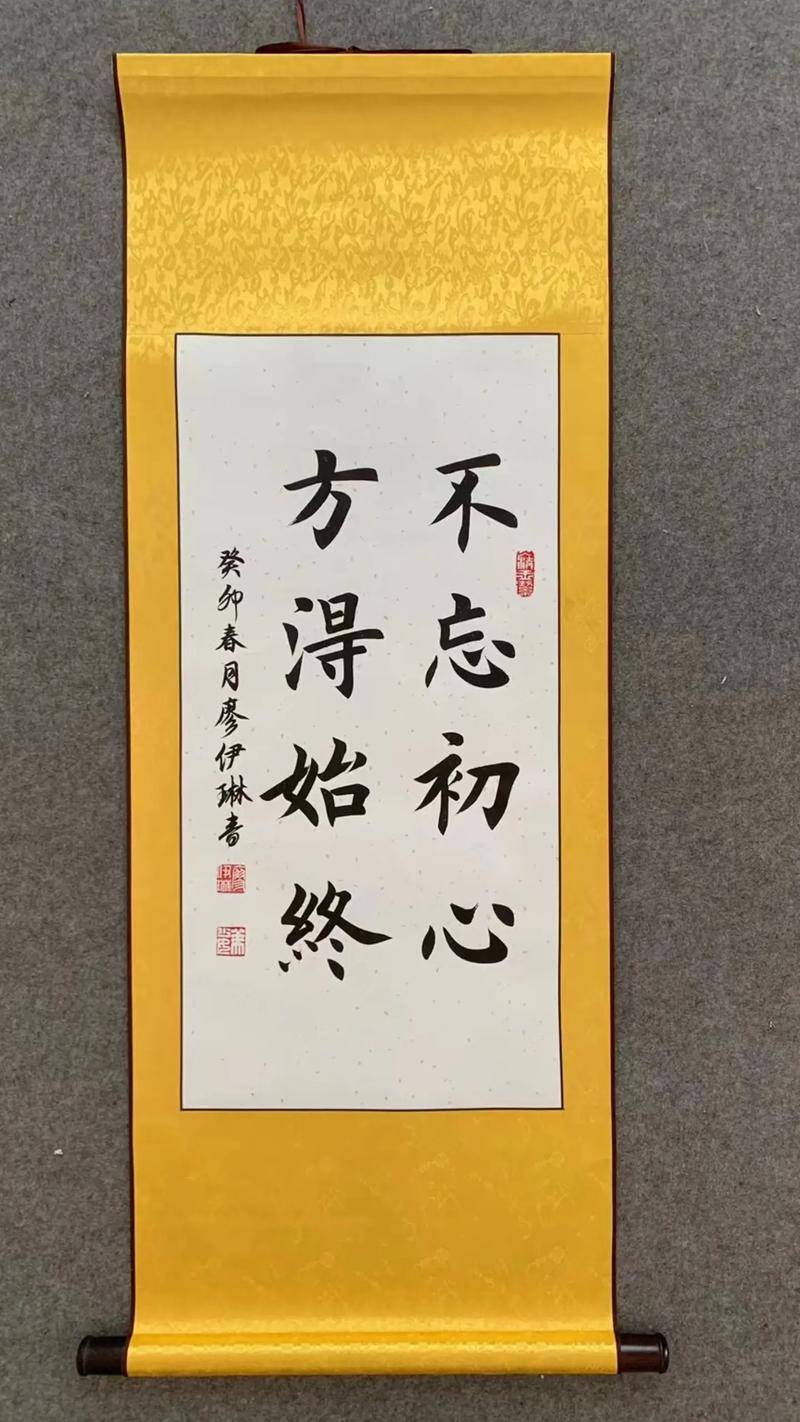 不忘初心
方得始终
癸卯春月廖伊琳书